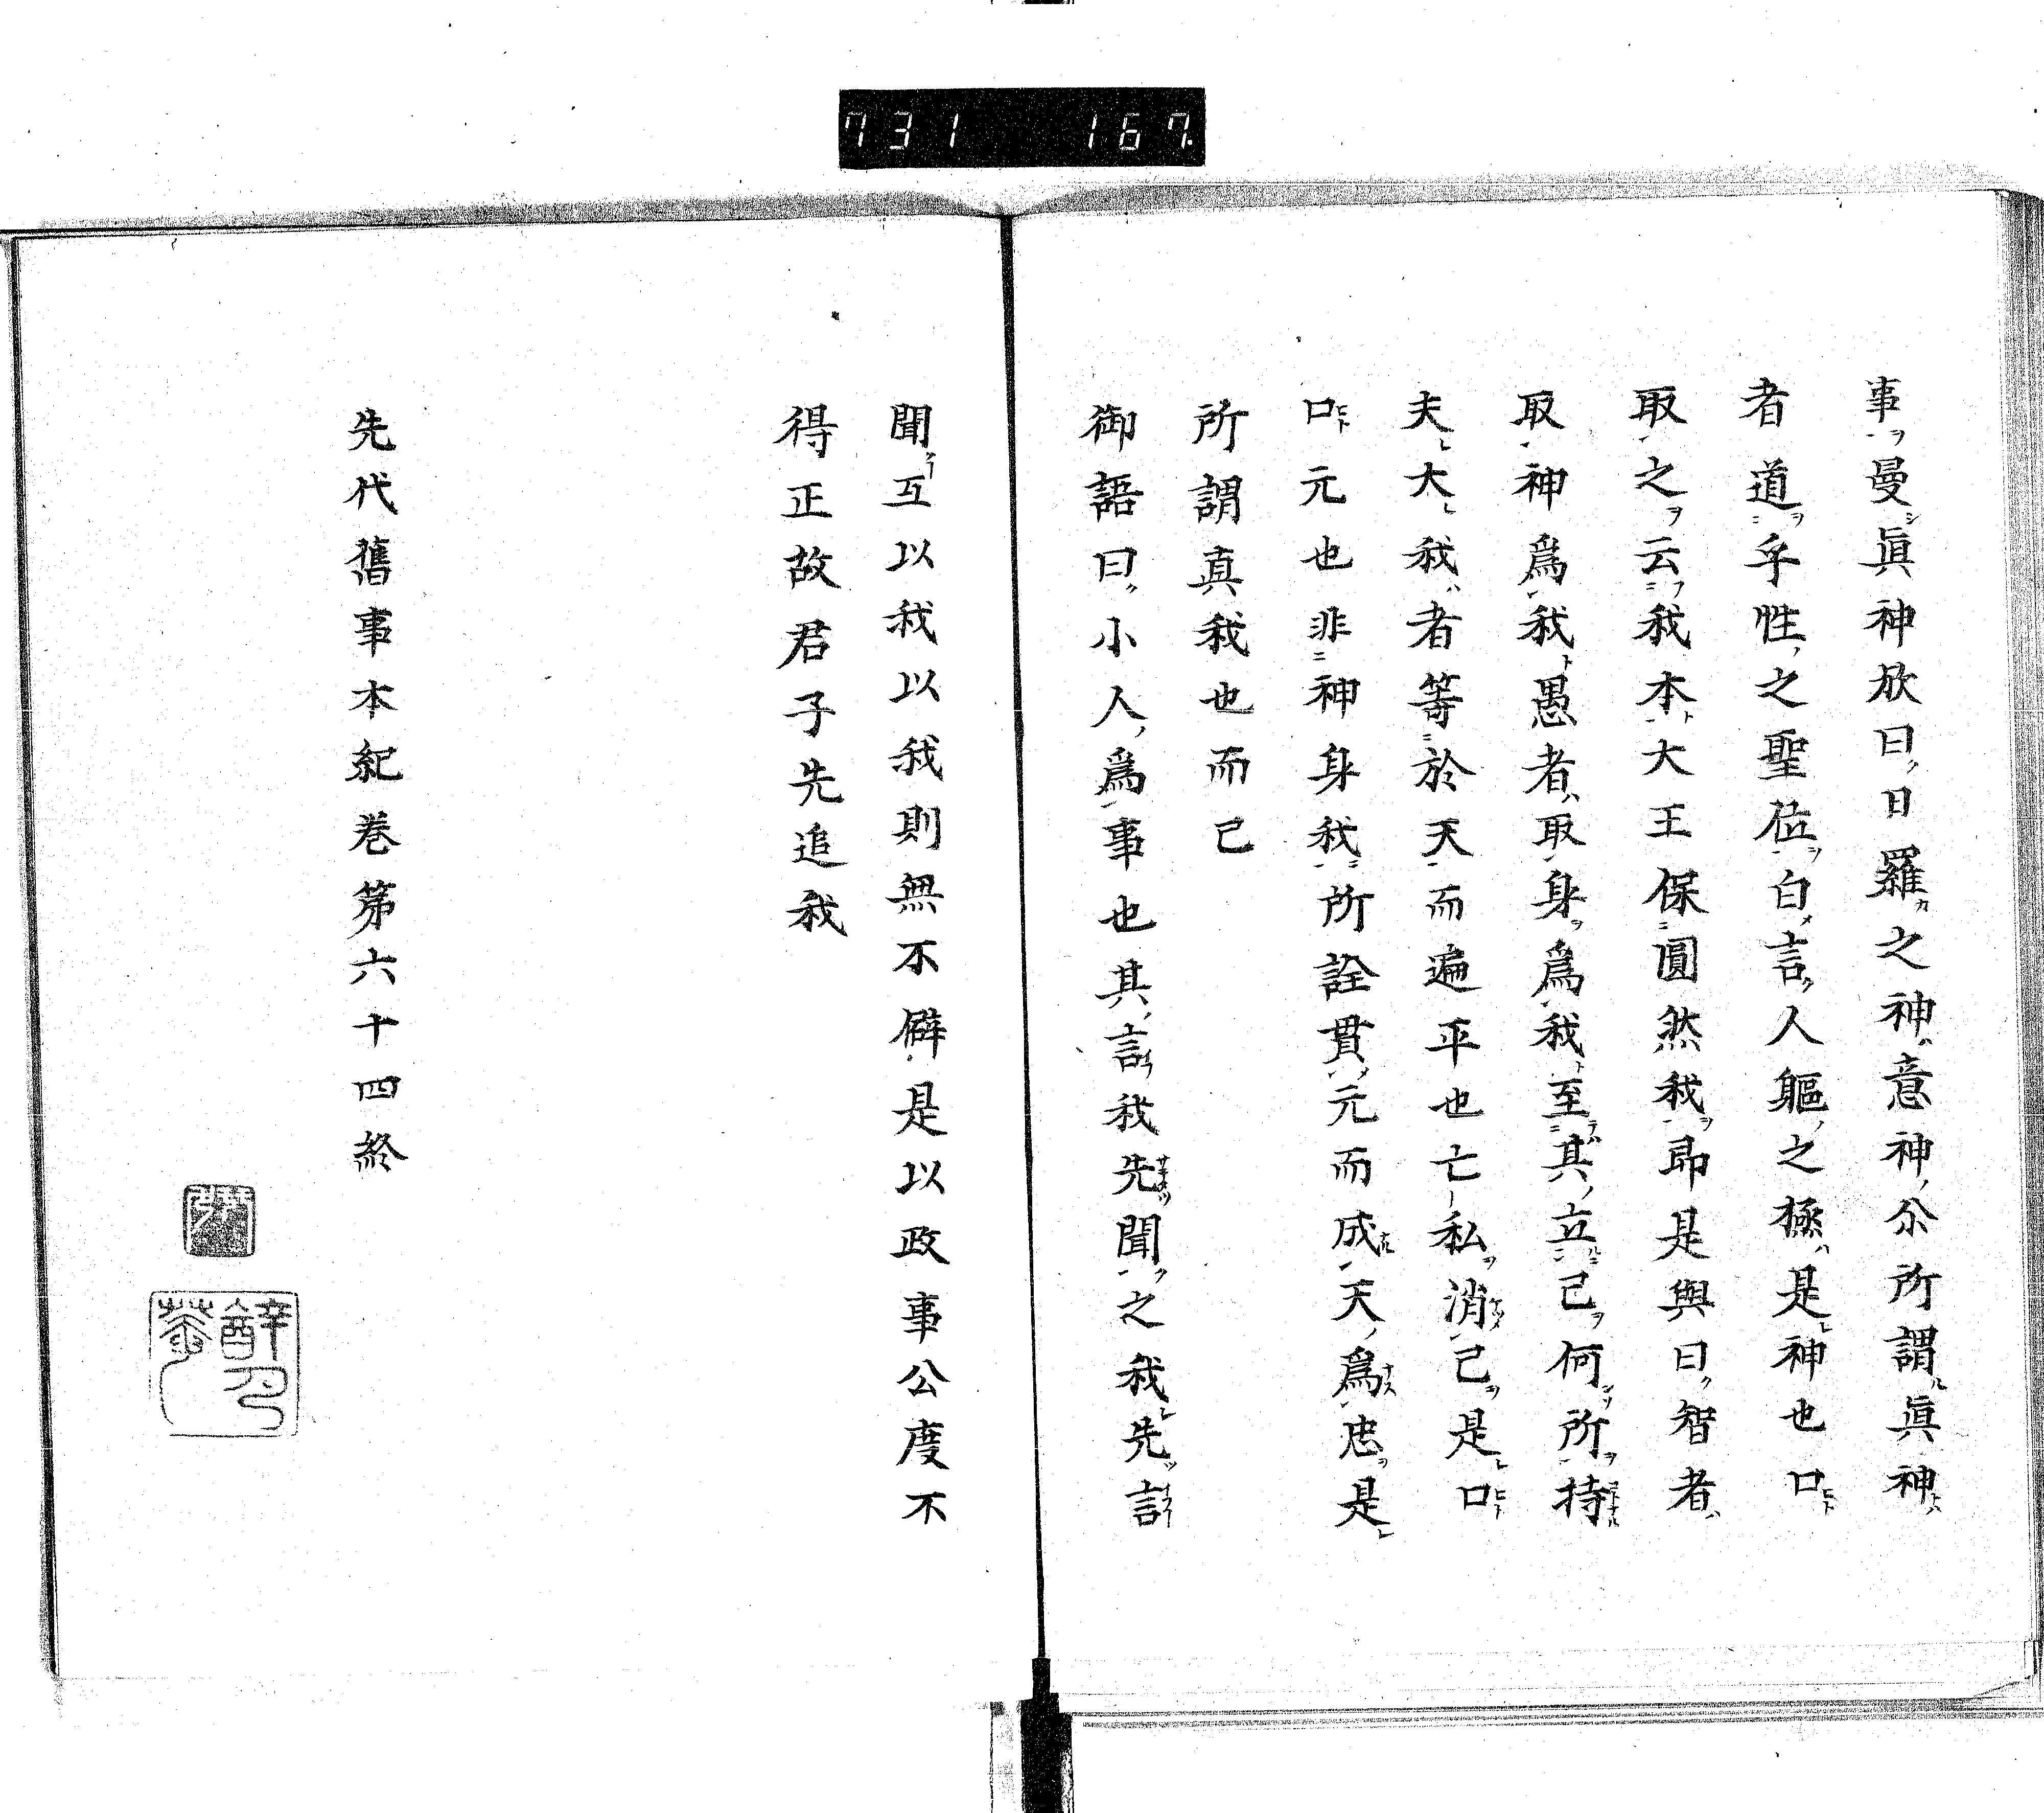 731 167.
事曼眞神欣曰日羅之神意神尒所謂眞神
者道乎性之聖位白言人軀之極是神也口
取之云我本大王保圓然我即是與曰智者
取神爲我愚者取身爲我至其立己何所持
夫大我者等於天而遍平也亡私消己是口
口元也非神身我所詮貫元而成天爲忠是
所謂真我也而已
御語曰小人爲事也其言我先聞之我先言
聞互以我以我則無不僻是以政事公度不
得正故君子先追我
先代舊事本紀巻第六十四終